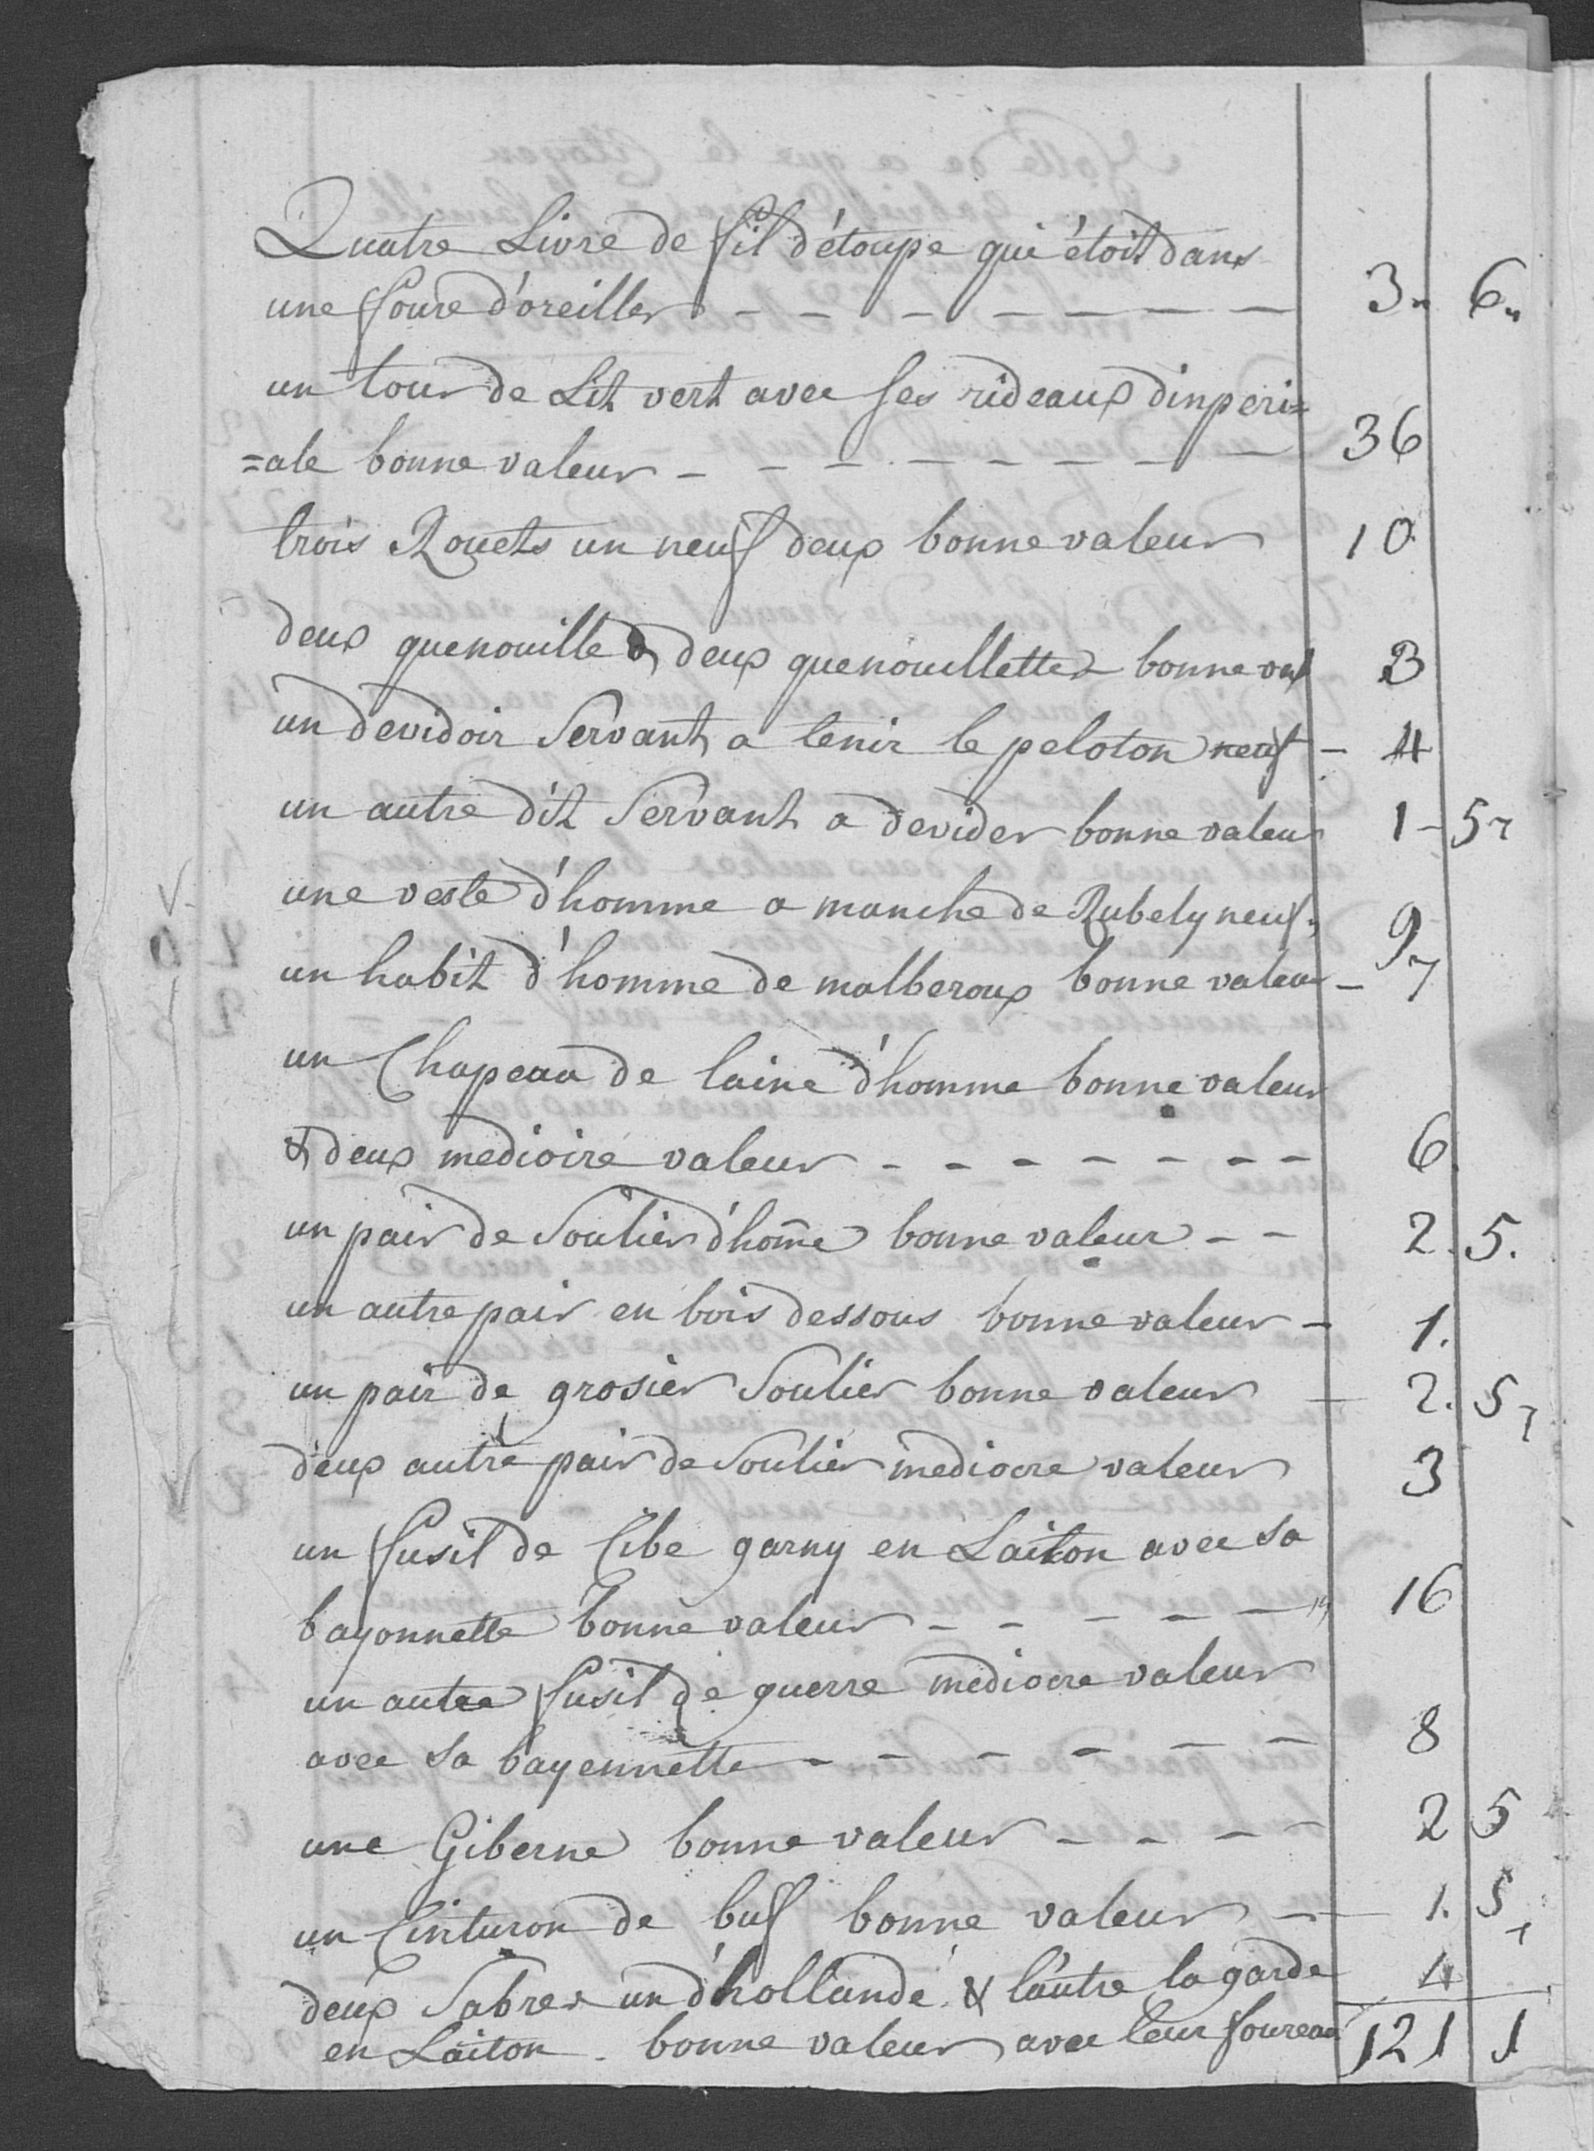 Quatre Livre de fil d'étoupe qui étoit dans
une foure d'oreiller - - - - - - - - 3 „ 6 „
un tour de Lit vert avec ses rideaux dinperi=
=ale bonne valeur - - - - - - - - 36
trois Rouets un neuf deux bonne valeur 10
deux quenouille & deux quenouillette bonne val 3
un devidoir Servant a tenir le peloton neuf - 4
un autre dit Servant a devider bonne valeur 1 - 5
une veste d'homme a manche de Rubely neuf 9
un habit d'homme de malberoux bonne valeur - 7
un Chapeau de laine d'homme bonne valeur
& deux medioire valeur - - - - - - - 6
un pair de Soulier d'hom̃e bonne valeur - - 2. 5.
un autre pair en bois dessous bonne valeur - 1.
un pair de grosier Soulier bonne valeur - 2. 5
deux autre pair de Soulier mediocre valeur 3
un fusil de Cibe garny en Laiton avec sa
bayonnette bonne valeur - - - - - 16
un autre fusil de guerre mediocre valeur
avec sa bayennette - - - - - - 8
une Giberne bonne valeur - - - - 2 5
un Cinturon de buf bonne valeur - 1. 5
deux Sabres un d'hollande & l'autre la garde 4
en Laiton - bonne valeur avec leur foureau 121 1